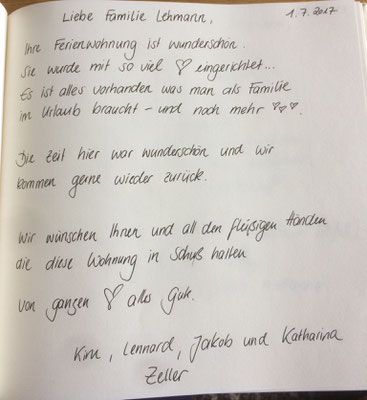 Liebe Familie Lehmann, 1.7.2017
Ihre Ferienwohnung ist wunderschön.
Sie wurde mit so viel ♡ eingerichtet...
Es ist alles vorhanden was man als Familie
im Urlaub braucht – und noch mehr ♡♡♡.
Die Zeit hier war wunderschön und wir
kommen gerne wieder zurück.
Wir wünschen Ihnen und all den fleißigen Händen
die diese Wohnung in Schuß halten
von ganzen ♡ alles Gute.
Kim, Lennard, Jakob und Katharina
Zeller